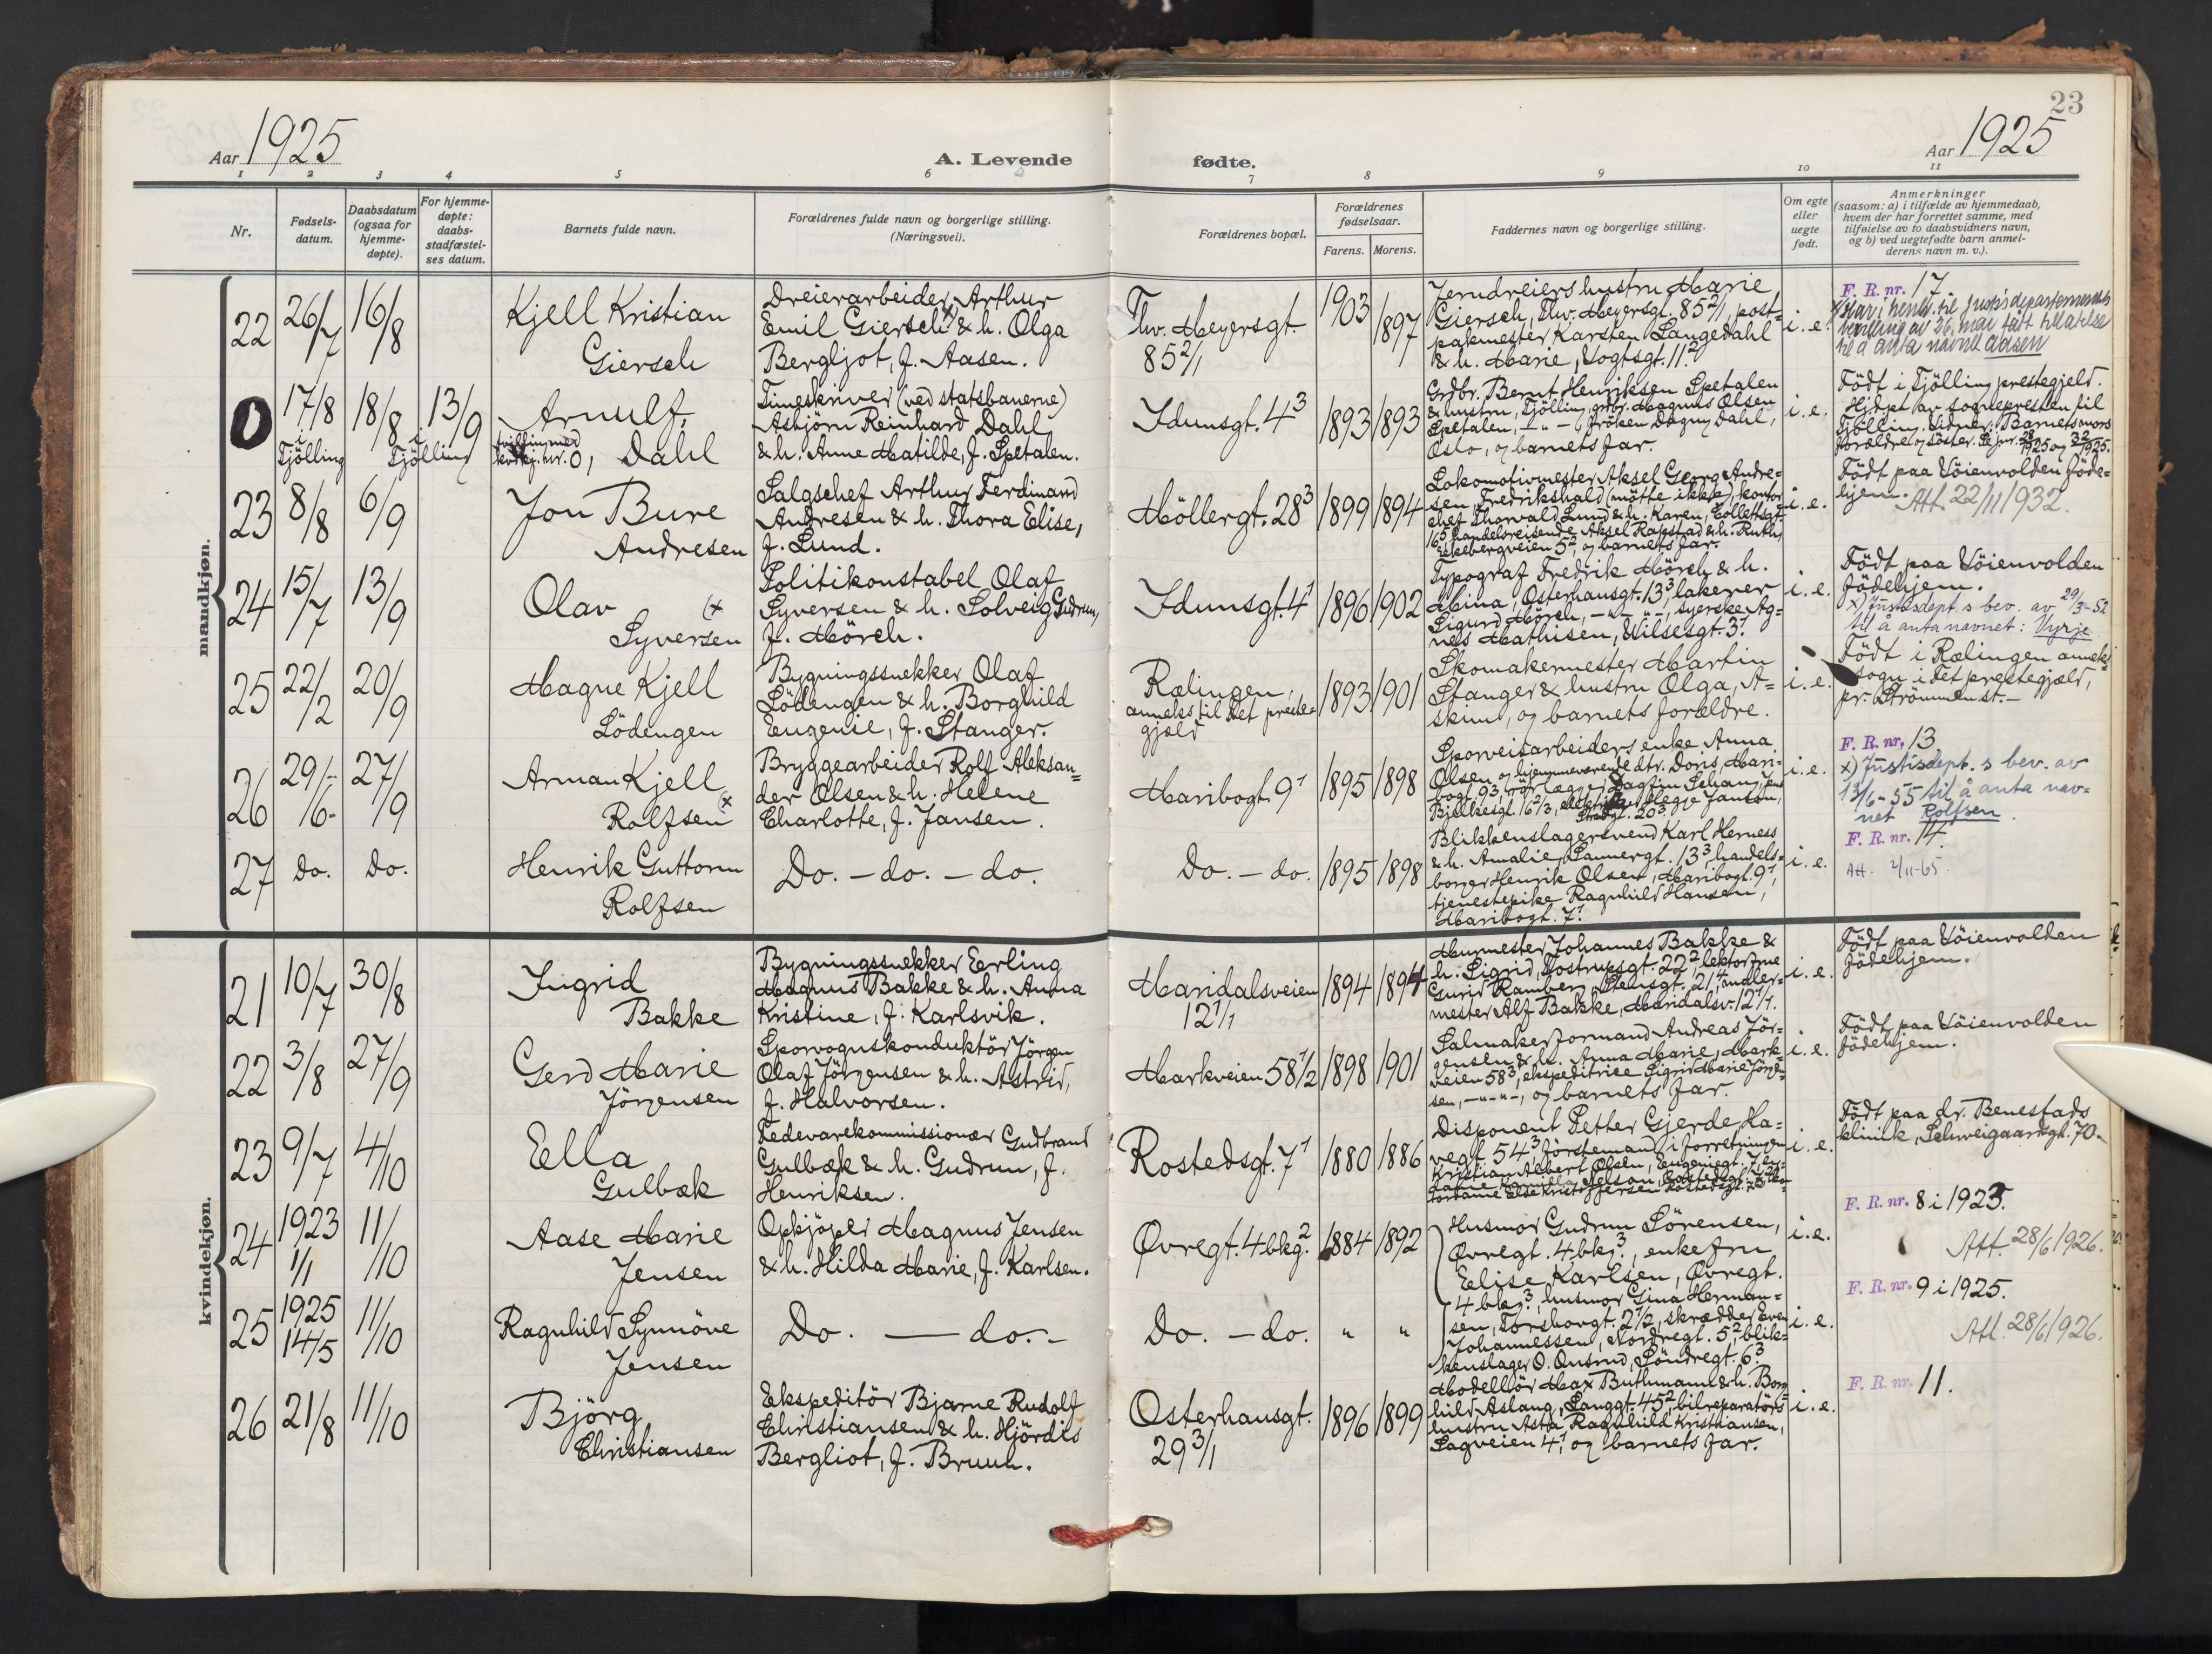 23
Aar 1925
A. Levende fødte.
Aar 1925
1 2 3 4 5 6 7 8 9 10 11
Nr.
Fødsels-
datum.
Daabsdatum
(ogsaa for
hjemme-
døpte).
For hjemme-
døpte:
daabs-
stadfæstel-
ses datum.
Barnets fulde navn.
Forældrenes fulde navn og borgerlige stilling.
(Næringsvei).
Forældrenes bopæl.
Forældrenes
fødselsaar.
Farens. Morens.
Faddernes navn og borgerlige stilling.
Om egte
eller
uegte
født.
Anmerkninger
(saasom: a) i tilfælde av hjemmedaab,
hvem der har forrettet samme, med
tilføielse av to daabsvidners navn,
og b) ved uegtefødte barn anmel-
derens navn m. v.).
mandkjøn.
22
26/7
16/8
Kjell Kristian
Giersch
Dreierarbeider Arthur
Emil Giersch x & h. Olga
Bergljot, f. Aasen.
Thv. Meyersgt.
85 2/1
1903
1897
Jerndreiers hustru Marie
Giersch, Thv. Meyersgt. 85 2/1, post-
pakmester Karsten Langedahl
& h. Marie, Vogtsgt. 11 2
i. e.
F. R. nr. 17
x) Har i henh. til Justisdepartementets
bevilling av 26. mai fått tillatelse
til å anta navnet Aasen
0
17/8
i
Tjölling
18/8
i
Tjölling
13/9
Arnulf,
tvilling med
kvkj. nr. 0, Dahl
Timeskriver (ved statsbanerne)
Asbjörn Reinhard Dahl
& h. Anne Matilde, f. Spetalen.
Idunsgt. 4 3
1893
1893
Grdbr. Bernt Henriksen Spetalen
& hustru, Tjölling, grdbr. Magnus Olsen
Spetalen, - " -, fröken Dagny Dahl,
Oslo, og barnets far.
i. e.
Födt i Tjölling prestegjeld.
Hjdpt av sognepresten til
Tjölling. Vidner: Barnets mors
forældre og söster.
23
8/8
6/9
Jon Bure
Andresen
Salgschef Arthur Ferdinand
Andresen & h. Thora Elise,
f. Lund.
Möllergt. 28 3
1899
1894
Lokomotivmester Aksel Georg Andre-
sen, Fredrikshald (mötte ikke), kontor
chef Thorvald Lund & h. Karen, Collettsgt.
16 5, handelsreisende Aksel Rapstad & h. Ruth,
Ekebergveien 5 2, og barnets far.
i. e.
Födt paa Vöienvolden föde-
hjem. Att. 22/11 1932.
24
15/7
13/9
Olav (x
Syversen
Politikonstabel Olaf
Syversen & h. Solveig Gudrun,
f. Mörch.
Idunsgt. 4 1
1896
1902
Typograf Fredrik Mörch & h.
Mina, Osterhausgt. 13 3, lakerer
Sigurd Mörch, - " - " -, syerske Ag-
nes Mathisen, Wilsesgt. 3 1.
i. e.
Födt paa Vöienvolden
födehjem.
x) Justisdept.s bev. av 29/3-52
til å anta navnet: Vyrje
25
22/2
20/9
Magne Kjell
Lödengen
Bygningssnekker Olaf
Lödengen & h. Borghild
Eugenie, f. Stanger.
Rælingen,
anneks til Fet preste-
gjeld
1893
1901
Skomakermester Martin
Stanger & hustru Olga, A-
skim, og barnets forældre.
i. e.
Födt i Rælingen anneks
sogn i Fet prestegjæld,
pr. Strömmen st. -
26
29/6
27/9
Arman Kjell
Rolfsen (x
Bryggearbeider Rolf Aleksan-
der Olsen & h. Helene
Charlotte, f. Jansen.
Maribogt. 9 1
1895
1898
Sporveisarbeiders enke Anna
Olsen og hjemmeværende dtr. Doris, Mari-
bogt. 9 3,
i. e.
F. R. nr. 13
x) Justisdept.s bev. av
13/6-55 til å anta nav-
net Rolfsen.
27
Do.
Do.
Henrik Guttorm
Rolfsen
Do. - do. - do.
Do. - do.
1895
1898
Blikkenslagersvend Karl Herness
& h. Amalie, Lannergt. 13 3, handels-
borger Henrik Olsen, Maribogt. 9 1,
tjenestepike Ragnhild Hansen,
Maribogt. 7 1.
i. e.
F. R. nr. 14.
Att. 2/11-65
kvindekjøn.
21
10/7
30/8
Ingrid
Bakke
Bygningssnekker Eerling
Magnus Bakke & h. Anna
Kristine, f. Karlsvik.
Maridalsveien
12 1/1
1894
1894
Murmester Johannes Bakke &
h. Sigrid, Tostrupsgt. 22 2, lektorfrue
Gurid Ramberg, Stensgt. 21 4, maler-
mester Alf Bakke, Maridalsv. 12 1/1.
i. e.
Födt paa Vöienvolden
födehjem.
22
3/8
27/9
Gerd Marie
Jörgensen
Sporvognskonduktör Jörgen
Olaf Jörgensen & h. Astrid,
f. Halvorsen.
Markveien 58 1/2
1898
1901
Salmakerformand Andreas Jör-
gensen & h. Anna Marie, Mark-
veien 58 3, ekspeditrice Sigrid Marie Jörgen-
sen, - " - " -, og barnets far.
i. e.
Födt paa Vöienvolden
födehjem.
23
9/7
4/10
Eella
Gulbæk
Ledevarekommissionær Gudbrand
Gulbæk & h. Gudrun, f.
Henriksen.
Rostedsgt. 7 1
1880
1886
Disponent Petter Gjerde, Ha-
vegt. 54 3, förstemand i forretningen
Kristian Albert Olsen,
i. e.
Födt paa dr. Benestads
klinik, Schweigaardsgt. 70.
24
1923
1/1
11/10
Aase Marie
Jensen
Opkjöper Magnus Jensen
& h. Hilda Marie, f. Karlsen.
Øvregt. 4 bkg. 2
1884
1892
Husmor Gudrun Sörensen,
Øvregt. 4 bkg. 3, enkefru
Eelise Karlsen, Øvregt.
4 bkg. 3, husmor Gina Herman-
sen, Torshovgt. 2 1/2, skrædder Even
Johannessen, Nordregt. 5 2, blik-
kenslager O. Onsrud, Söndregt. 6 3.
i. e.
F. R. nr. 8 i 1923.
Att. 28/6 1926.
25
1925
14/5
11/10
Ragnhild Synnöve
Jensen
Do. - do. -
Do. - do.
" "
i. e.
F. R. nr. 9 i 1925.
Att. 28/6 1926.
26
21/8
11/10
Björg
Christiansen
Ekspeditör Bjarne Rudolf
Christiansen & h. Hjördis
Bergliot, f. Bruun.
Osterhausgt.
29 3/1
1896
1899
Modellör Max Buthmann & h. Borg-
hild Aslaug, Langgt. 45 2, bilreparatörs
hustru Asta Ragnhild Kristiansen,
Sagveien 4 1, og barnets far.
i. e.
F. R. nr. 11.